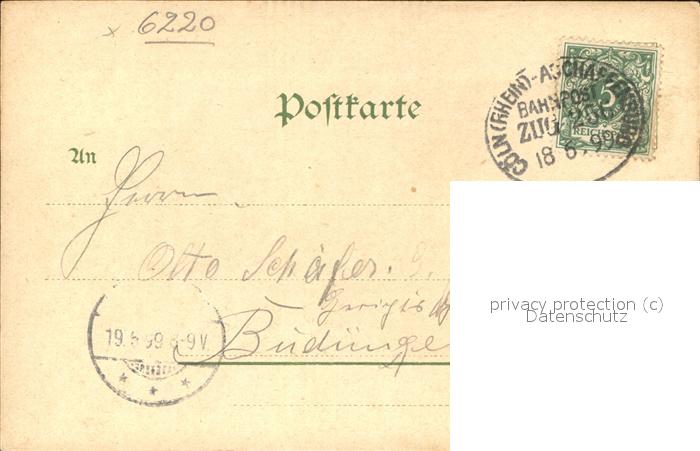 6220
Postkarte
CÖLN (RHEIN)-ASCHAFFENBURG
BAHNPOST
ZUG
18 6 99
5
REICHSPOST
An
Herrn
Otto Schäfer.
Büdinge
19.6 99 8-9 V.
privacy protection (c)
Datenschutz